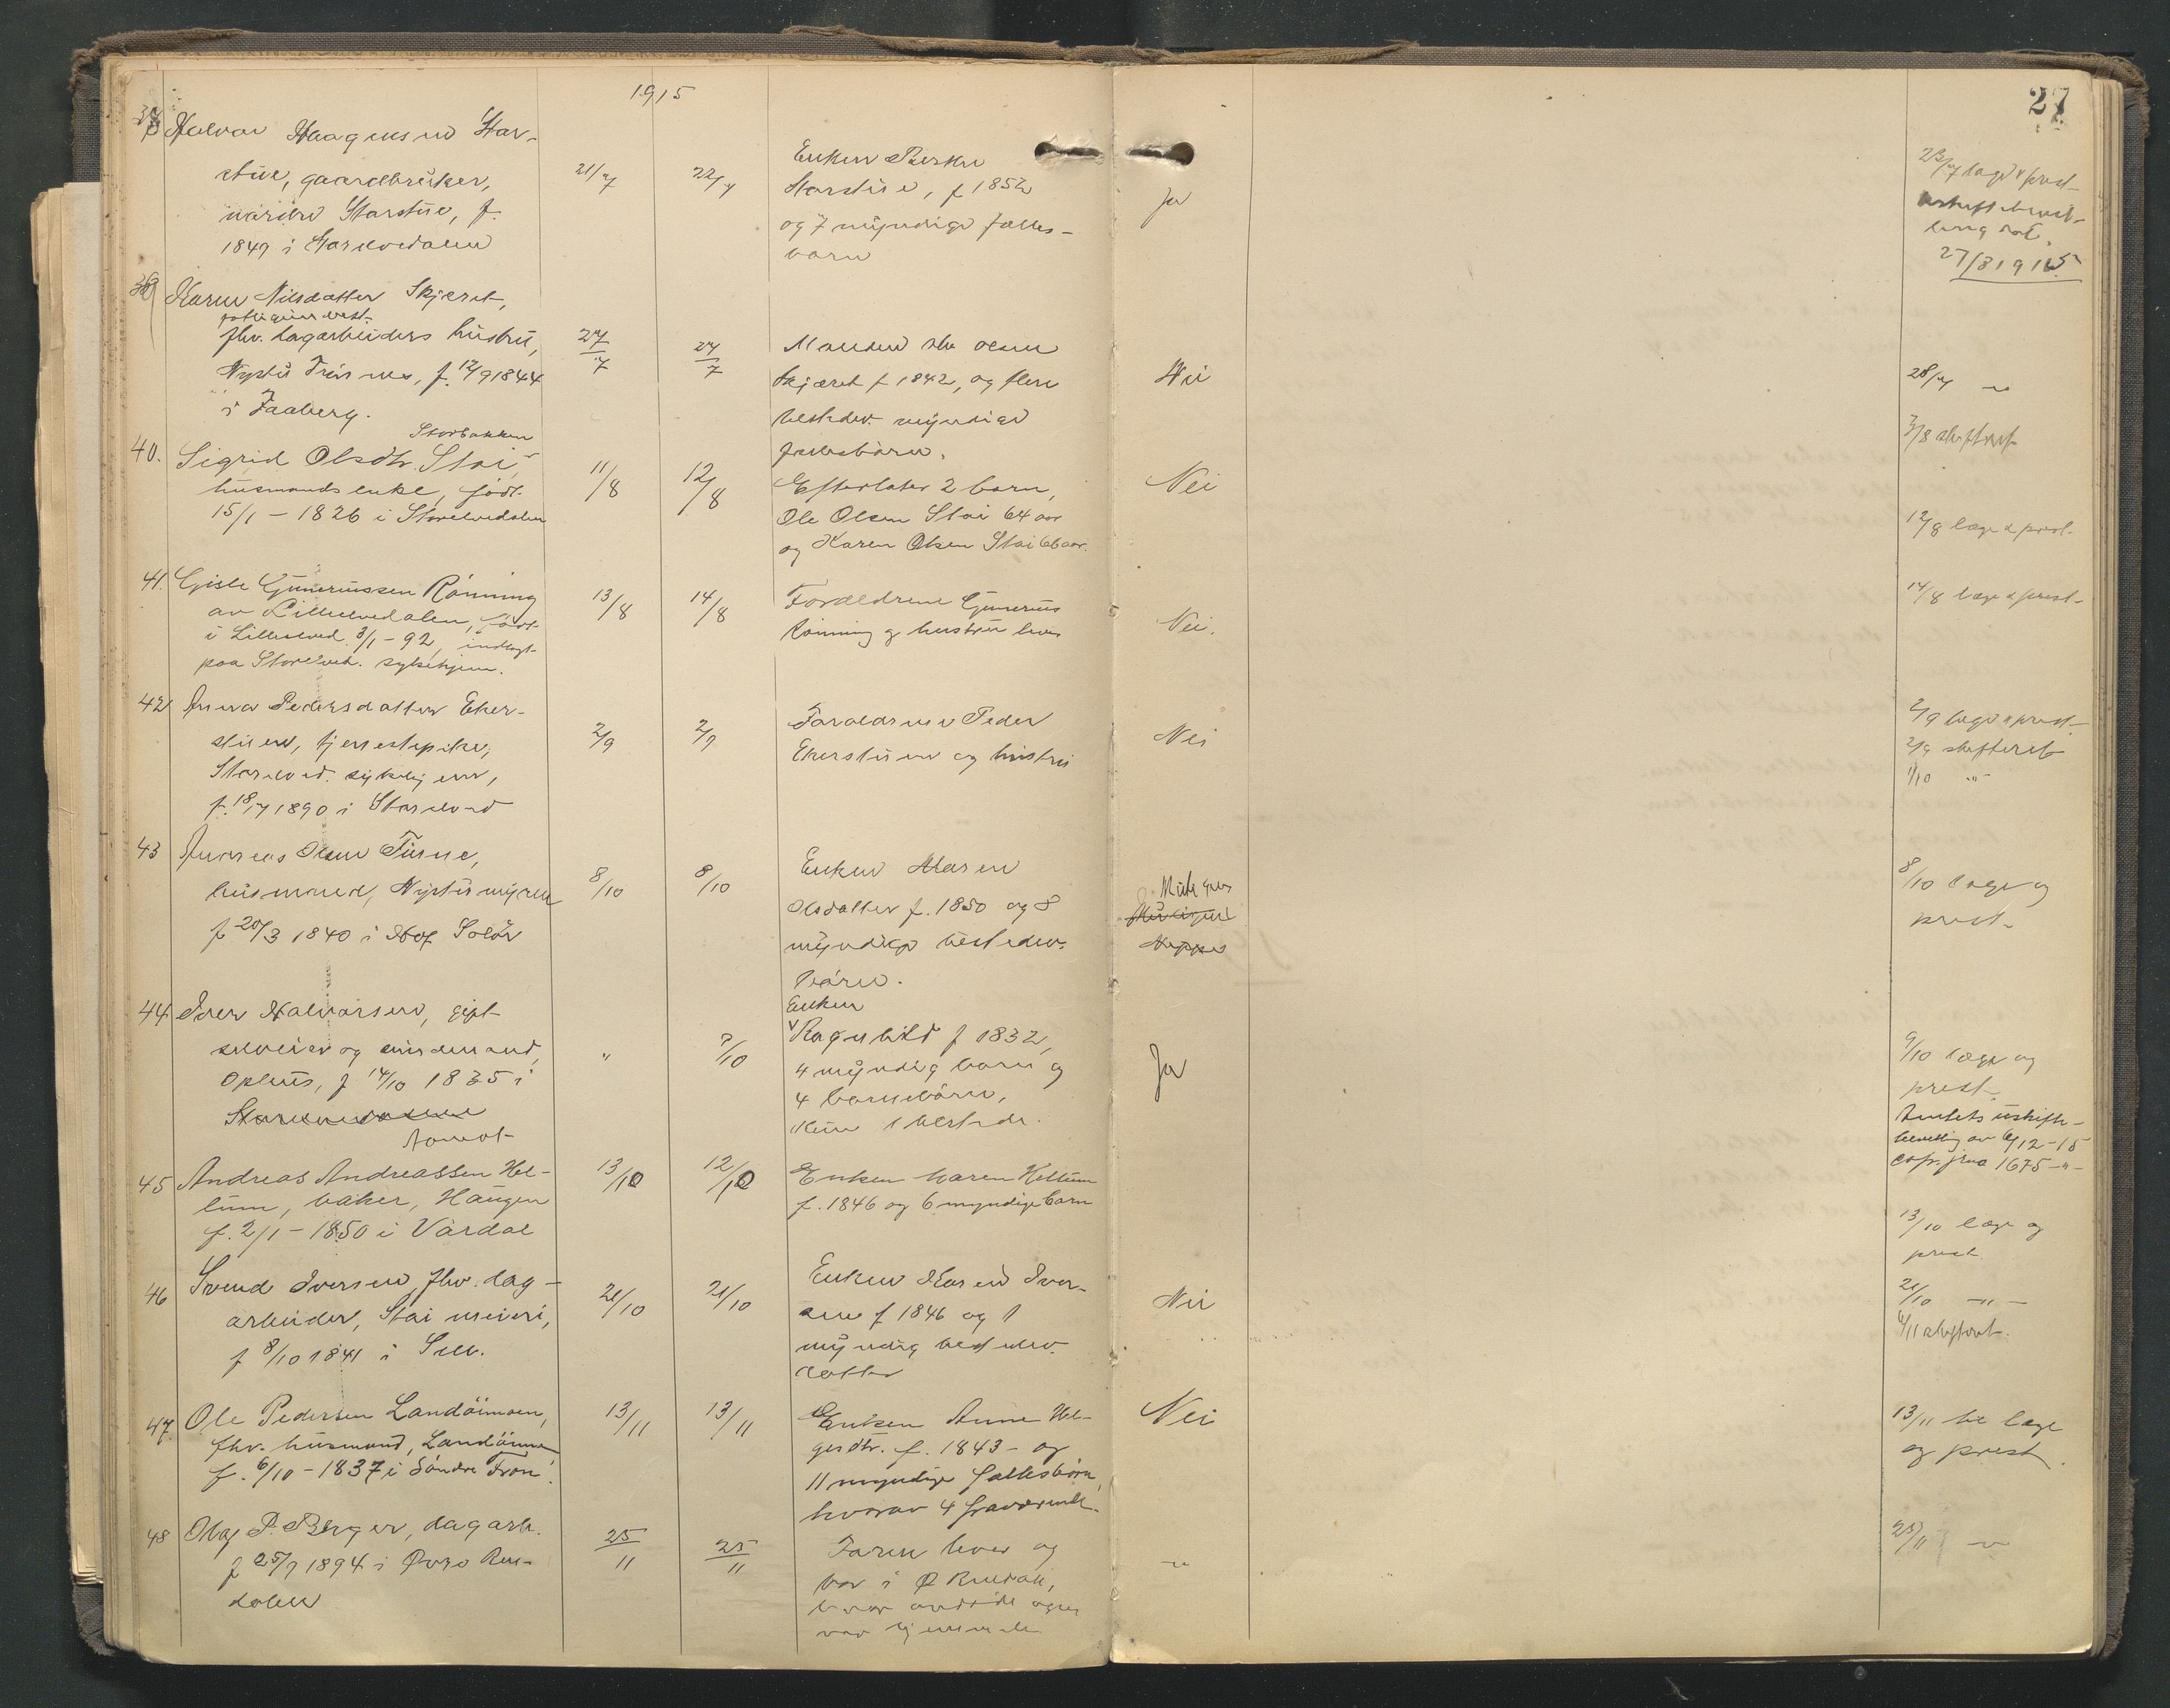 1915
27
38 Halvor Haagensen Stor-
stue, gaardbruker,
nordre Storstue, f.
1847 i Storelvedalen
21/7
22/7
Enken Berthe
Storstue, f 1852
og 7 myndige fælles-
barn
Ja
23/7 læge & prest
uskiftebevil-
ling dat.
27/8 1915
39 Karen Nilsdatter Skjæret,
fhv. dagarbeiders hustru,
Nystu Trønnes, f. 12/9 1844
i Faaberg.
27/7
27/7
Manden Ole Olsen
Skjæret f 1842, og flere
bestedev. myndige
fællesbørn.
Nei
28/7 "
3/8 skifteret
40. Sigrid Olsdtr. Stai,
Storbakken
husmands enke, født
15/1 - 1826 i Storelvedalen
11/8
12/8
Efterlater 2 barn,
Ole Olsen Stai 64 aar
og Karen Olsen Stai 66 aar.
Nei
12/8 læge & prest.
41. Gisle Gunerussen Rønning
av Lilleelvedalen, født
i Lilleelved. 3/1 - 92, indlagt
paa Storelved. sykehjem.
13/8
14/8
Forældrene Gunerius
Rønning og hustru lever
Nei.
14/8 læge & prest
42 Anna Pedersdatter Eker-
stuen, tjenestepike,
Storelved. sykehjem,
f. 18/7 1890 i Storelved
2/9
2/9
Forældrene Peder
Ekerstuen og hustru
Nei
2/9 læge & prest
2/9 skifteret
1/10 "
43 Andreas Olsen Turne,
husmand, Nystumyren
f 20/3 1840 i Hof Solør
8/10
8/10
Enken Maren
Olsdatter f. 1850 og 8
myndige bestedev.
børn.
8/10 læge og
prest
44 Iver Halvorsen, gipt
selveier og smedmand,
Ophus, f 14/10 1835 i
Storelvedalen
Aamot
"
7/10
Enken
Ragnhild f 1832,
4 myndig barn og
4 barnebørn,
Kun 1 bestedv.
Ja
9/10 læge og
prest
Amtets uskifte-
bevilling av 6/12-15
cop. jrn. 1675 -"-
45 Andreas Andreassen Hel-
lum, baker, Haugen
f. 2/1 - 1850 i Værdal
13/10
12/10
Enken Karen Hellum
f. 1846 og 6 myndige barn
13/10 læge og
prest
46 Svend Iversen, fhv. dag-
arbeider, Stai meieri,
f 8/10 1841 i Selb.
21/10
21/10
Enken Karen Iver-
sen f 1846 og 1
myndig bestedev.
datter
Nei
21/10 -"-
4/11 skifteret.
47. Ole Pedersen Landøimoen,
fhv. husmand, Landøimoen
f. 6/10 - 1837 i Søndre Fron.
13/11
13/11
Enken Anne Hel-
gesdtr. f. 1843 - og
11 myndige fællesbørn,
hvorav 4 fraværende.
Nei
13/11 til læge
og prest.
48 Olaf P. Berger, dagarb.
f 25/7 1894 i Øvre Ren-
dalen
25/11
25/11
Faren lever og
bor i Ø Rendal,
"
25/11 "